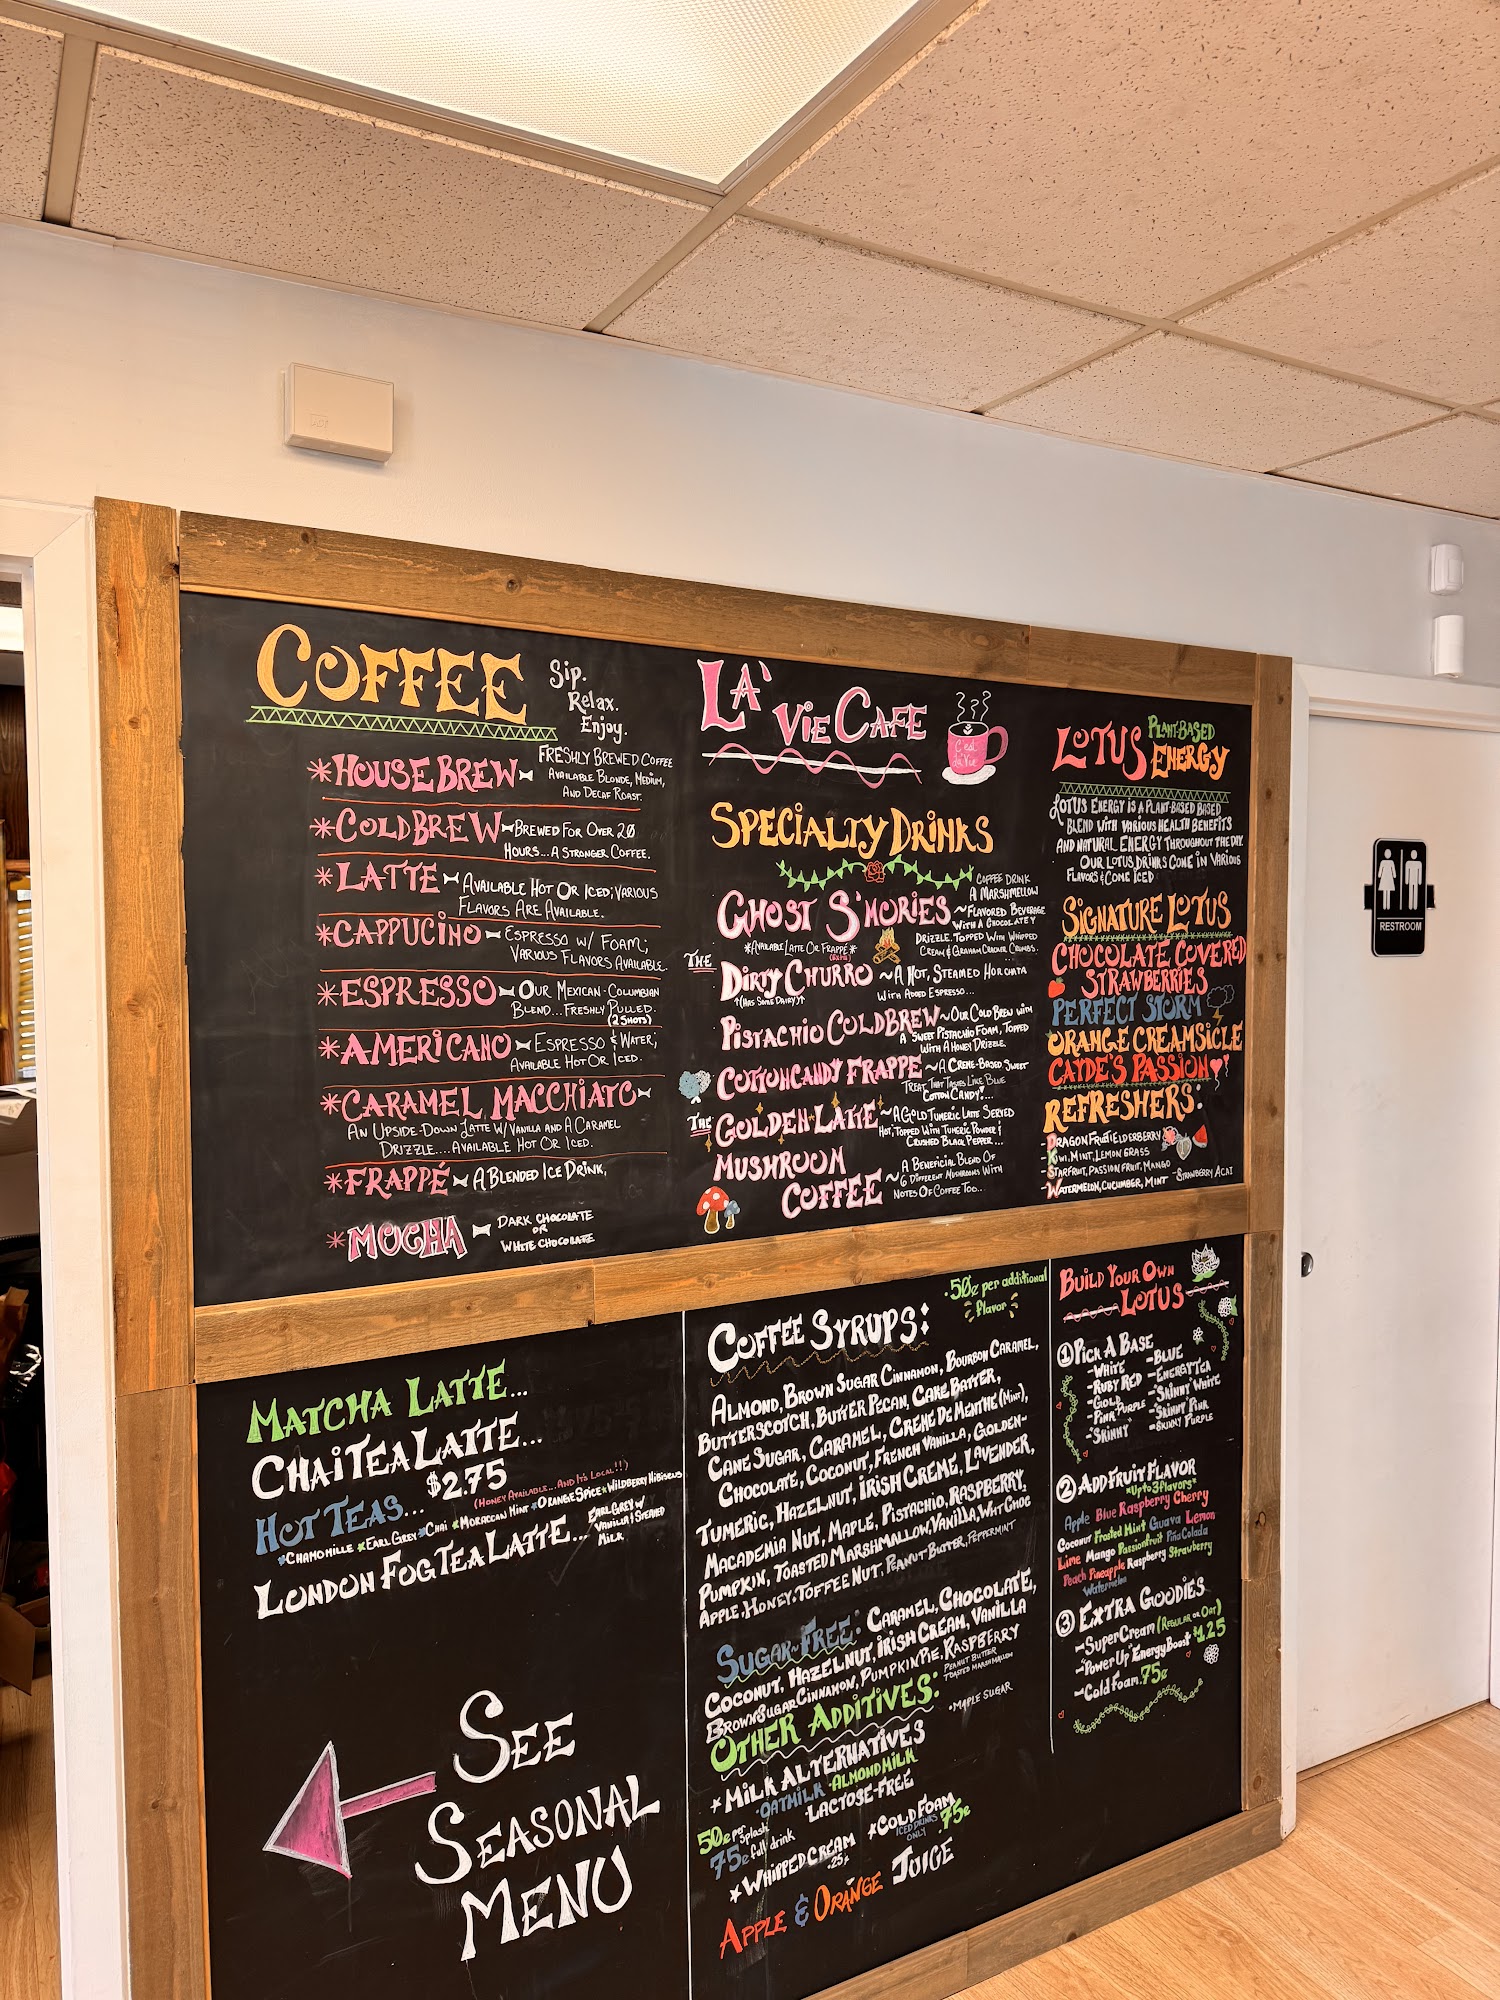 COFFEE
Sip.
Relax.
Enjoy.
*HOUSE BREW
FRESHLY BREWED COFFEE
AVAILABLE BLONDE, MEDIUM,
AND DECAF ROAST.
*COLD BREW BREWED FOR OVER 20
HOURS... A STRONGER COFFEE.
*LATTE AVAILABLE HOT OR ICED; VARIOUS
FLAVORS ARE AVAILABLE.
*CAPPUCINO ESPRESSO W/ FOAM;
VARIOUS FLAVORS AVAILABLE.
*ESPRESSO OUR MEXICAN-COLUMBIAN
BLEND... FRESHLY PULLED.
(2 SHOTS)
*AMERICANO ESPRESSO & WATER;
AVAILABLE HOT OR ICED.
*CARAMEL MACCHIATO
AN UPSIDE-DOWN LATTE W/ VANILLA AND A CARAMEL
DRIZZLE.... AVAILABLE HOT OR ICED.
*FRAPPÉ A BLENDED ICE DRINK,
*MOCHA DARK CHOCOLATE
OR
WHITE CHOCOLATE
LA' VIE CAFE
C'est
la Vie
SPECIALTY DRINKS
GHOST S'MORIES
COFFEE DRINK
A MARSHMELLOW
~FLAVORED BEVERAGE
WITH A CHOCOLATEY
DRIZZLE. TOPPED WITH WHIPPED
CREAM & GRAHAM CRACKER CRUMBS.
*AVAILABLE LATTE OR FRAPPÉ*
THE
DIRTY CHURRO ~A HOT, STEAMED HORCHATA
WITH ADDED ESPRESSO...
*(HAS SOME DAIRY)*
PISTACHIO COLD BREW~OUR COLD BREW WITH
A SWEET PISTACHIO FOAM, TOPPED
WITH A HONEY DRIZZLE.
COTTON CANDY FRAPPE ~A CREME-BASED SWEET
TREAT THAT TASTES LIKE BLUE
COTTON CANDY!...
THE GOLDEN LATTE ~A GOLD TUMERIC LATTE SERVED
HOT, TOPPED WITH TUMERIC POWDER &
CRUSHED BLACK PEPPER...
MUSHROOM
COFFEE
~A BENEFICIAL BLEND OF
6 DIFFERENT MUSHROOMS WITH
NOTES OF COFFEE TOO...
LOTUS PLANT-BASED
ENERGY
LOTUS ENERGY IS A PLANT-BASED BASED
BLEND WITH VARIOUS HEALTH BENEFITS
AND NATURAL ENERGY THROUGHOUT THE DAY.
OUR LOTUS DRINKS COME IN VARIOUS
FLAVORS & COME ICED
SIGNATURE LOTUS
CHOCOLATE COVERED
STRAWBERRIES
PERFECT STORM
ORANGE CREAMSICLE
CAYDE'S PASSION
REFRESHERS:
-DRAGON FRUIT ELDERBERRY
-KIWI, MINT, LEMON GRASS
-STARFRUIT, PASSION FRUIT, MANGO
-STRAWBERRY ACAI
-WATERMELON, CUCUMBER, MINT
RESTROOM
MATCHA LATTE...
CHAI TEA LATTE...
$2.75
HOT TEAS... (HONEY AVAILABLE... AND IT'S LOCAL!!)
*CHAMOMILLE *EARL GREY *CHAI *MORACCAN MINT *ORANGE SPICE *WILDBERRY HIBISCUS
LONDON FOG TEA LATTE... EARL GREY W/
VANILLA & STEAMED
MILK
SEE
SEASONAL
MENU
COFFEE SYRUPS:
.50¢ per additional
flavor
ALMOND, BROWN SUGAR CINNAMON, BOURBON CARAMEL,
BUTTERSCOTCH, BUTTER PECAN, CAKE BATTER,
CANE SUGAR, CARAMEL, CREME DE MENTHE (MINT),
CHOCOLATE, COCONUT, FRENCH VANILLA, GOLDEN-
TUMERIC, HAZELNUT, IRISH CREME, LAVENDER,
MACADEMIA NUT, MAPLE, PISTACHIO, RASPBERRY,
PUMPKIN, TOASTED MARSHMALLOW, VANILLA, WHT CHOC
APPLE, HONEY, TOFFEE NUT, PEANUT BUTTER, PEPPERMINT
SUGAR-FREE: CARAMEL, CHOCOLATE,
COCONUT, HAZELNUT, IRISH CREAM, VANILLA
BROWN SUGAR CINNAMON, PUMPKIN PIE, RASPBERRY
PEANUT BUTTER
TOASTED MARSHMALLOW
OTHER ADDITIVES: •MAPLE SUGAR
*MILK ALTERNATIVES
•OATMILK •ALMOND MILK
•LACTOSE-FREE
50¢ per splash
75¢ full drink
*COLD FOAM .75¢
ICED DRINKS
ONLY
*WHIPPED CREAM
.25¢
APPLE & ORANGE JUICE
BUILD YOUR OWN
LOTUS
① PICK A BASE
-WHITE
-RUBY RED
-GOLD
-PINK
-PURPLE
-"SKINNY"
-BLUE
-ENERGY TEA
-"SKINNY" WHITE
-"SKINNY" PINK
-SKINNY PURPLE
② ADD FRUIT FLAVOR
*Up to 3 flavors*
Apple Blue Raspberry Cherry
Coconut Frosted Mint Guava Lemon
Lime Mango Passionfruit Piña Colada
Peach Pineapple Raspberry Strawberry
Watermelon
③ EXTRA GOODIES
-SuperCream (REGULAR OR OAT)
-"Power Up" Energy Boost $1.25
-Cold Foam .75¢